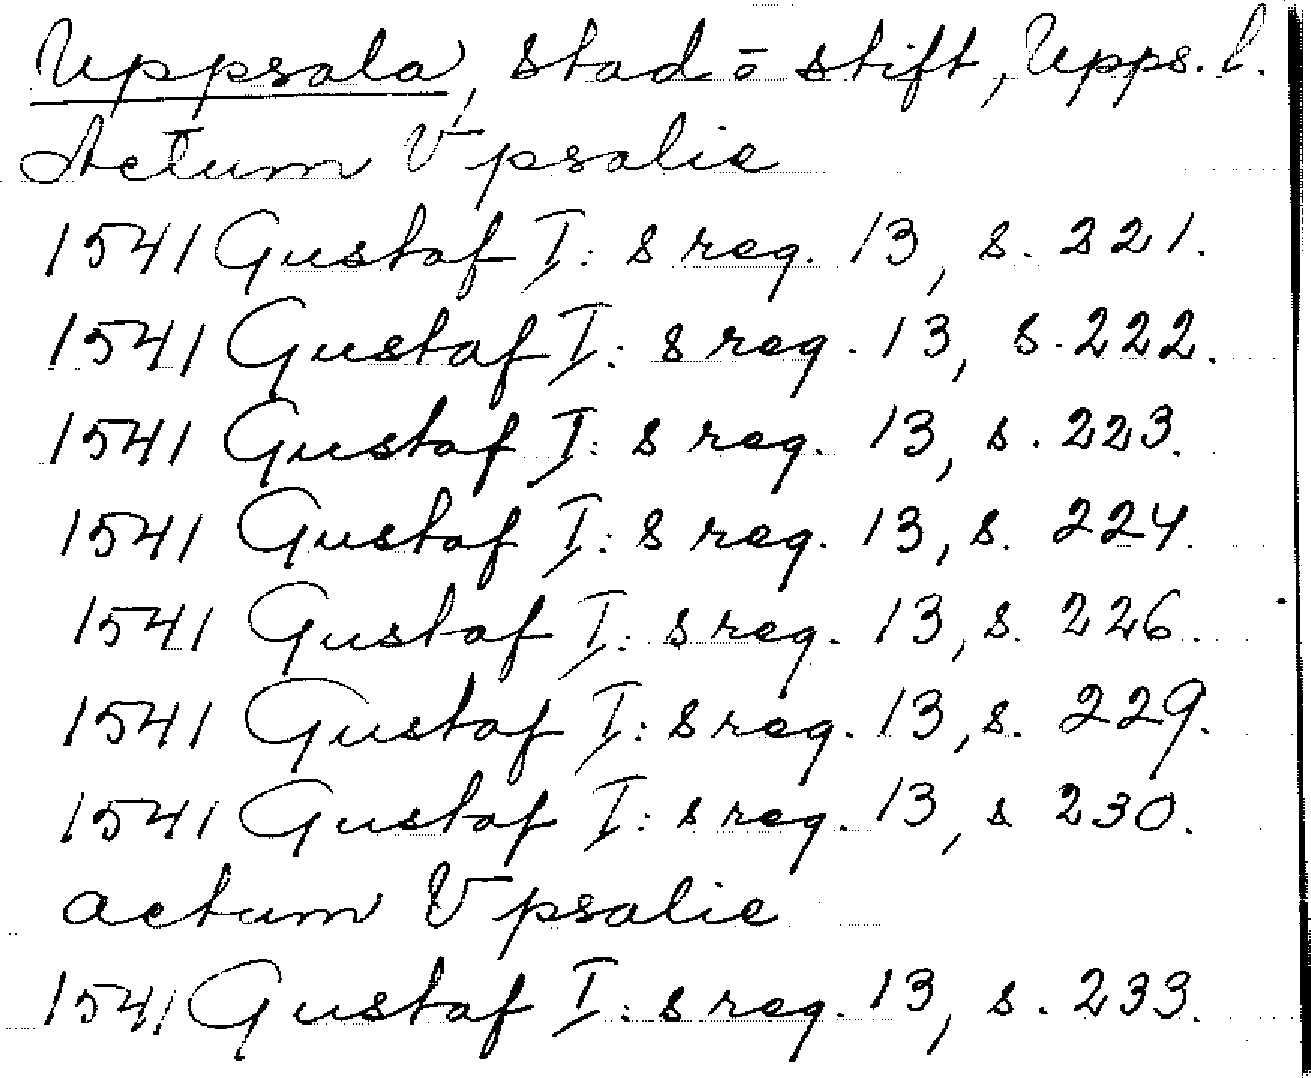 Uppsala, stad o stift, Upps. l.
Actum Vpsalie
1541 Gustaf I:s reg. 13, s. 221.
1541 Gustaf I:s reg. 13, s. 222.
1541 Gustaf I:s reg. 13, s. 223.
1541 Gustaf I:s reg. 13, s. 224.
1541 Gustaf I:s reg. 13, s. 226.
1541 Gustaf I:s reg. 13, s. 229.
1541 Gustaf I:s reg. 13, s 230.
actum Vpsalie
1541 Gustaf I:s reg. 13, s. 233.